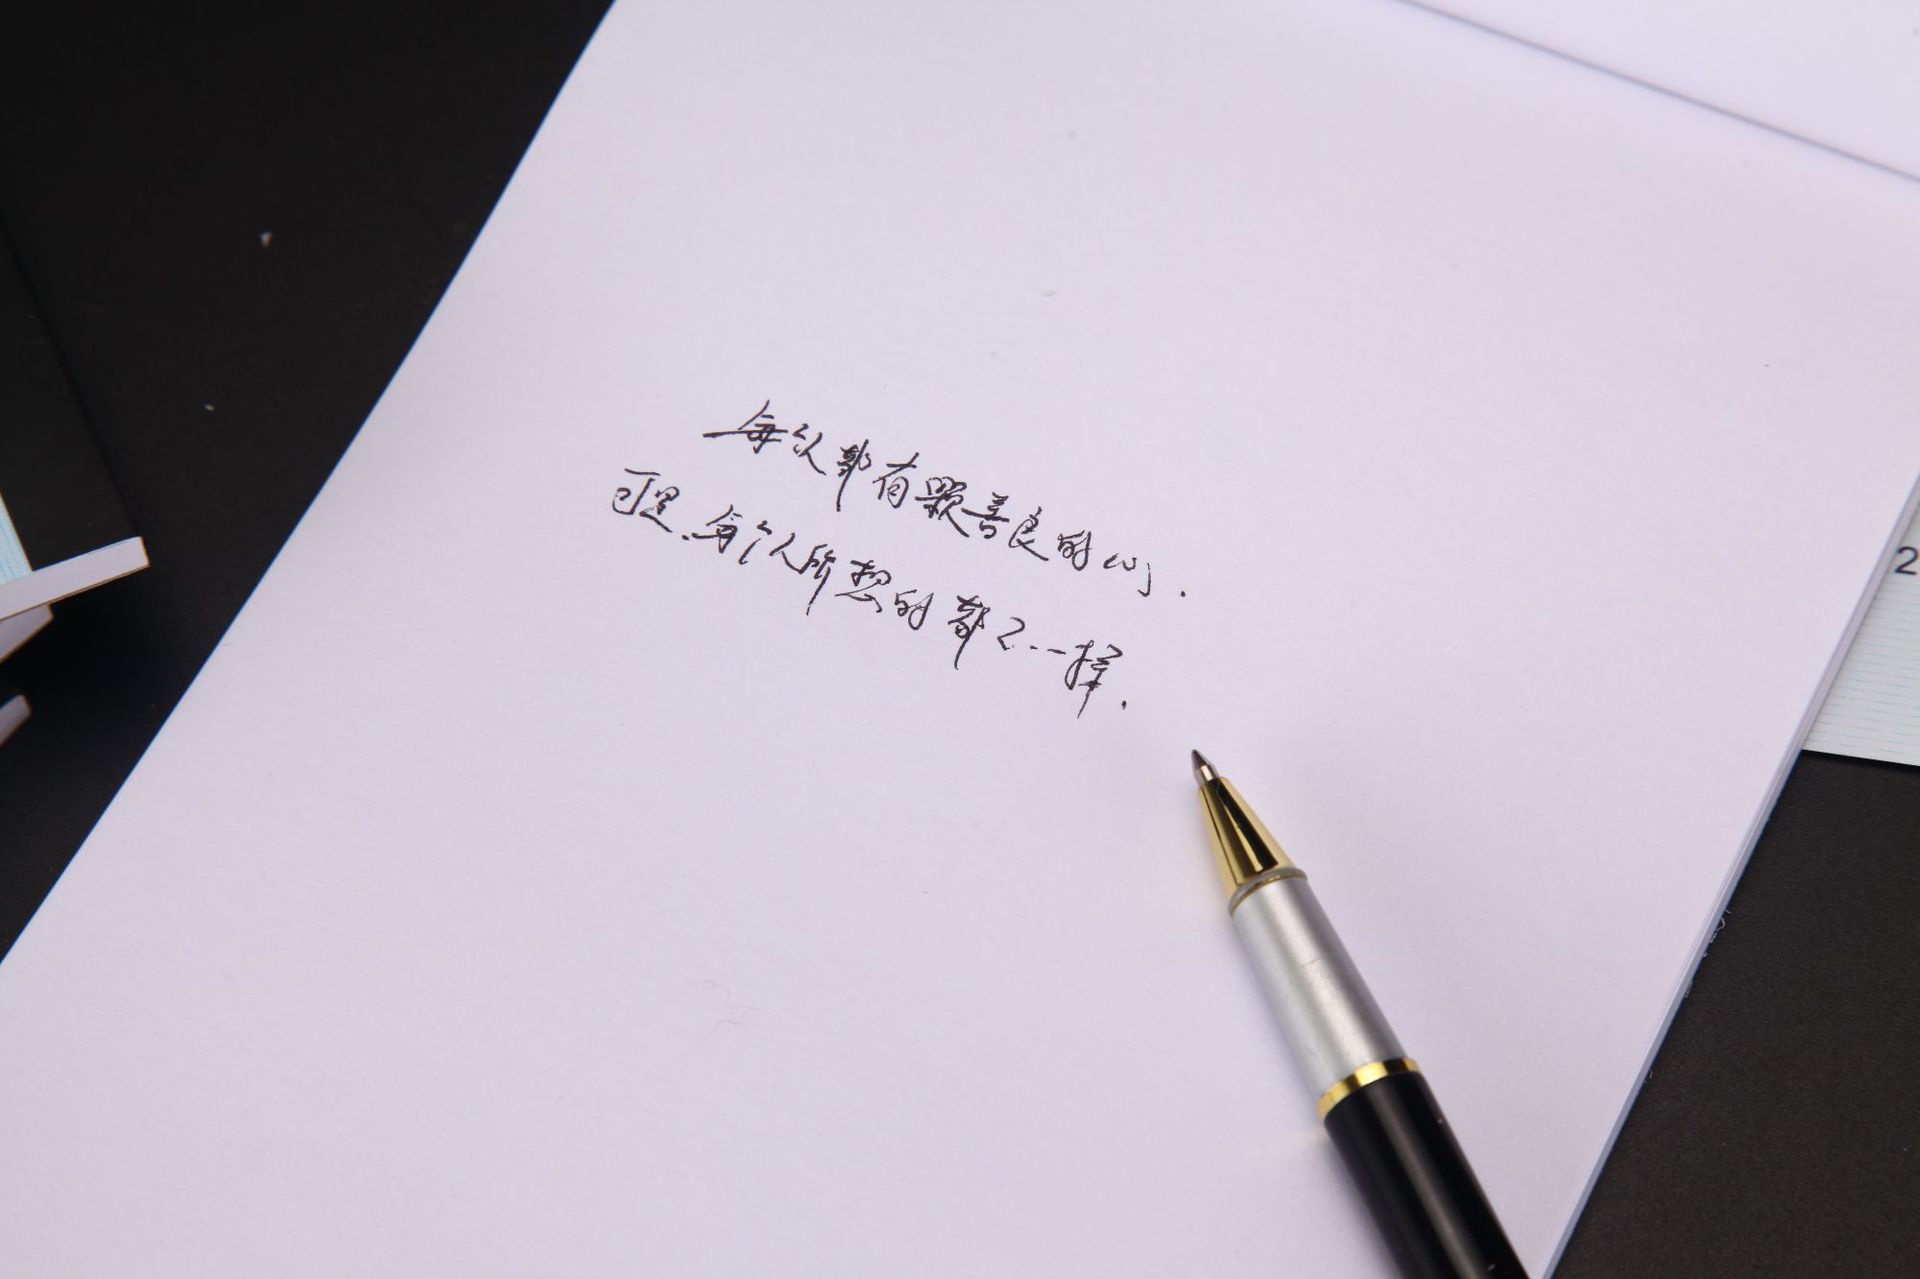 每个人都有颗善良的心.
可是、每个人所想的都不一样.
2